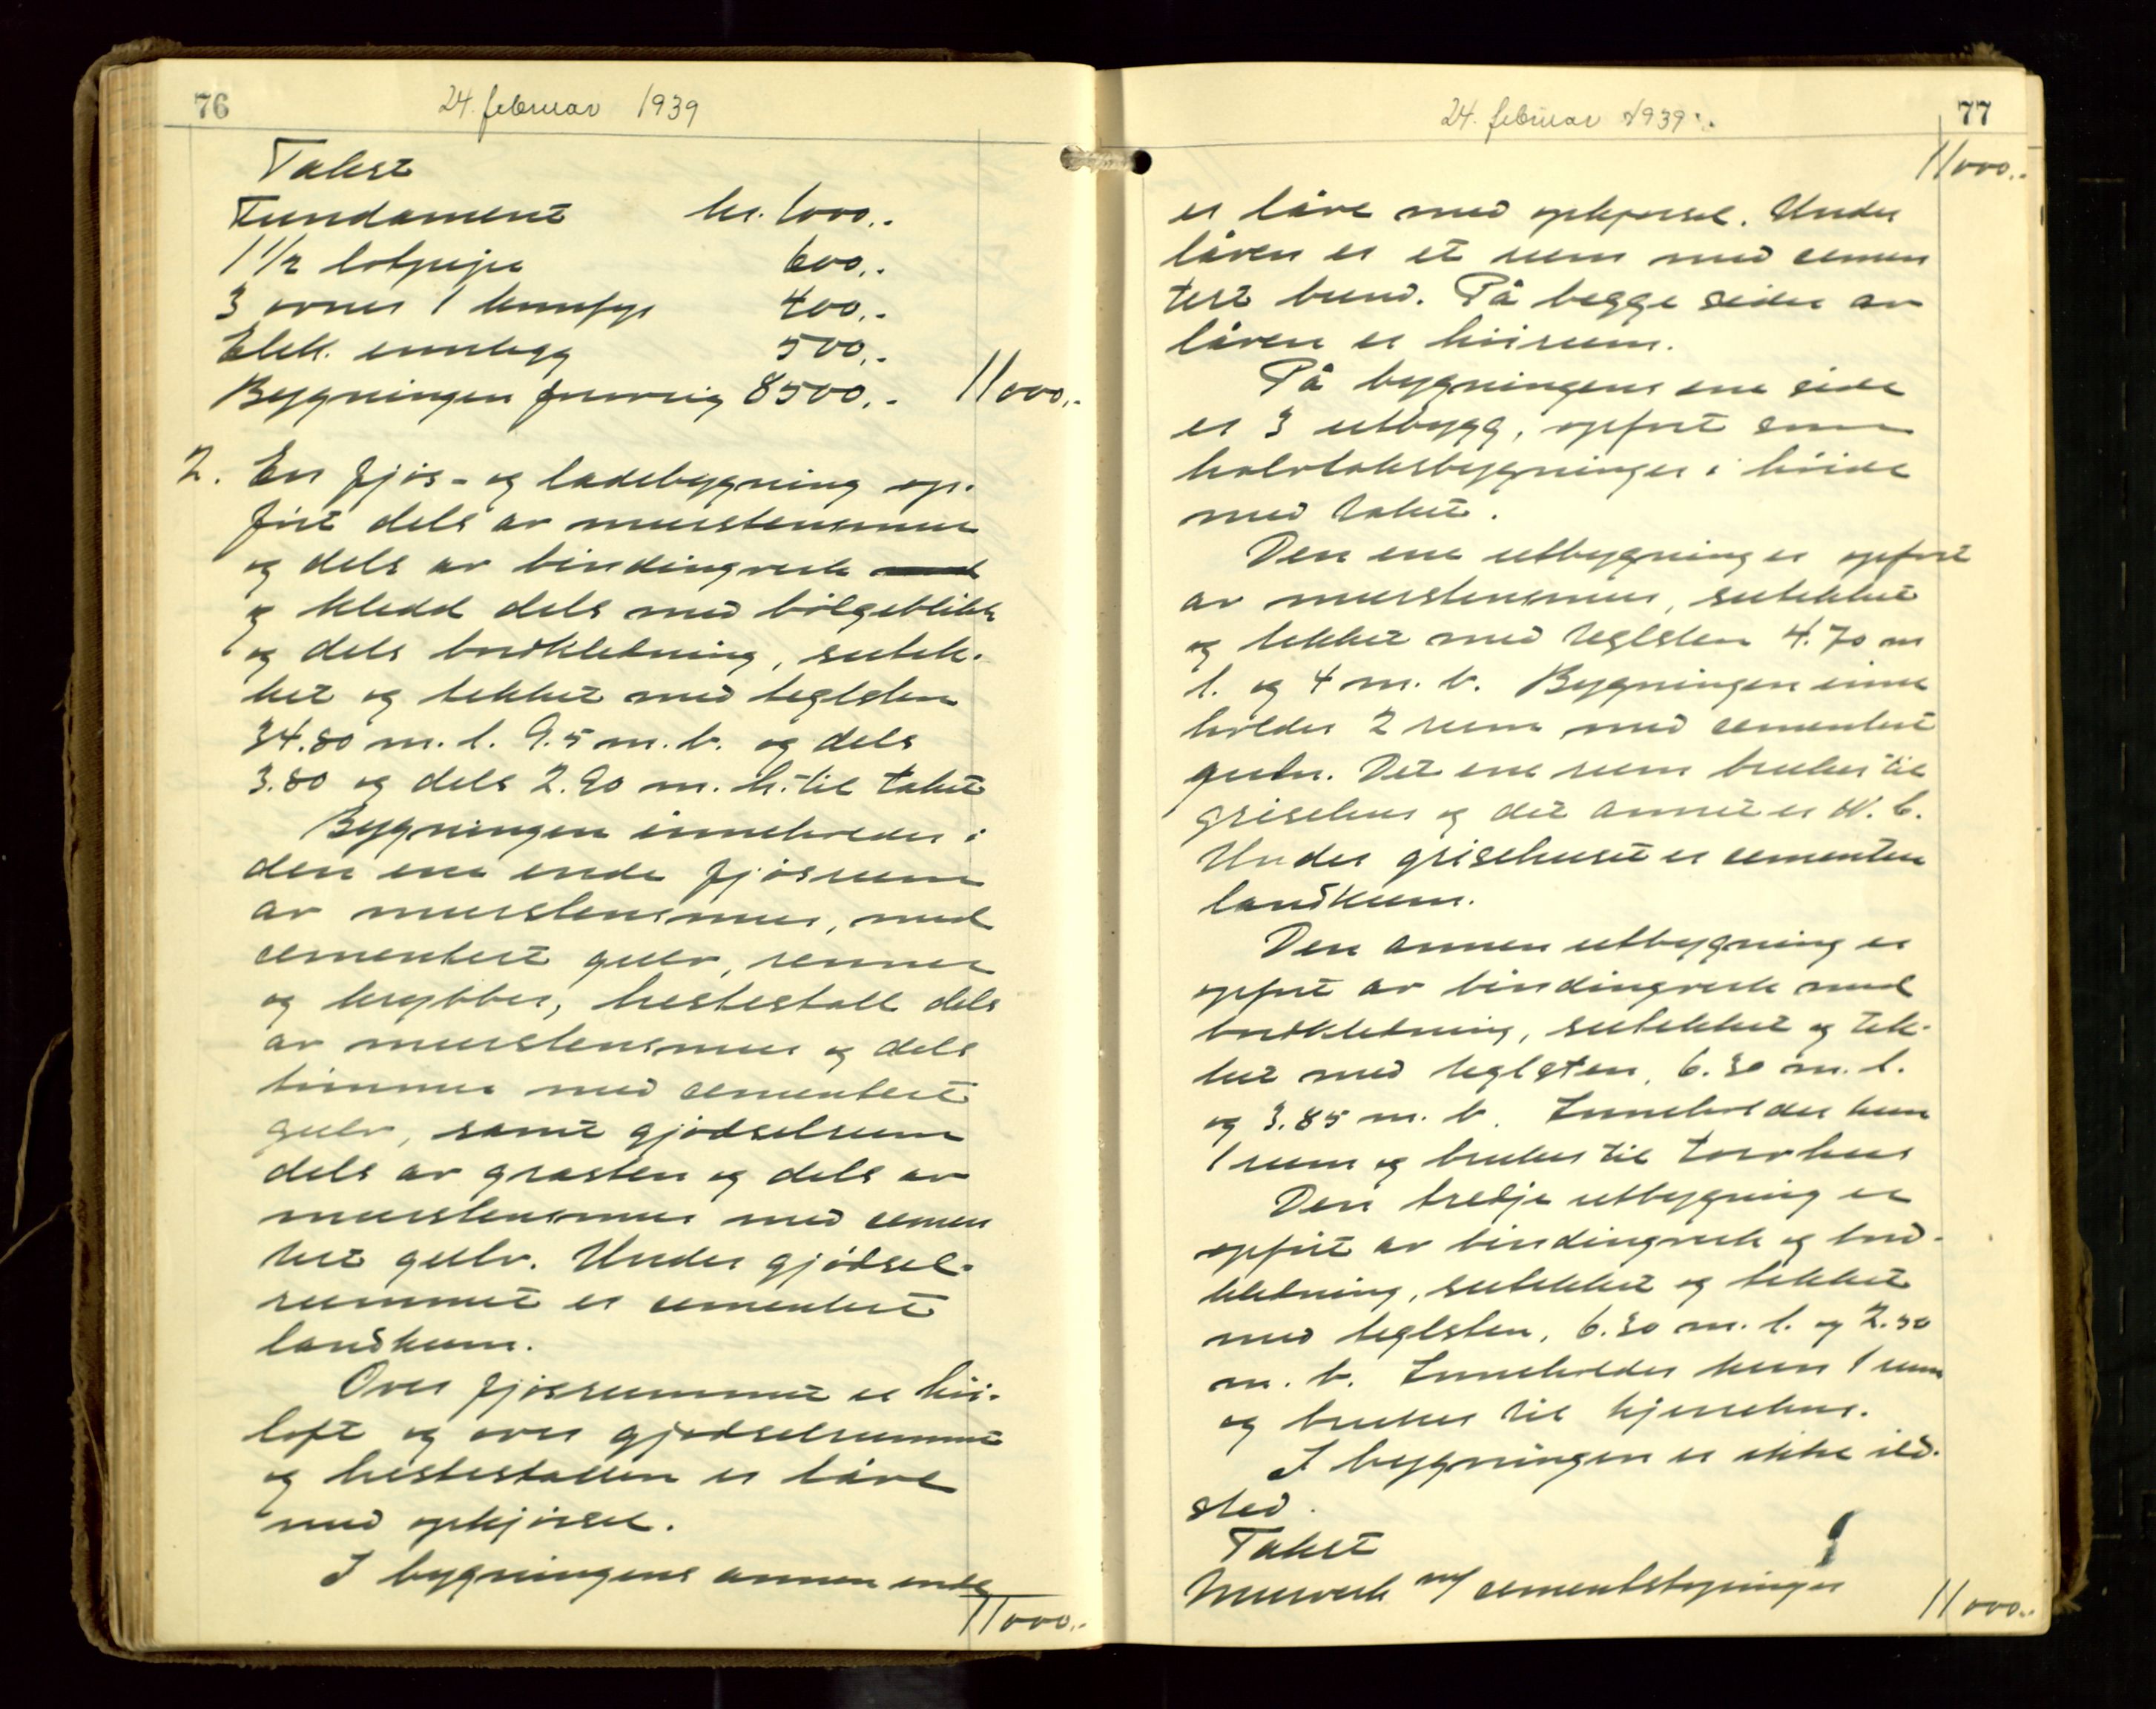 76
24. februar 1939
Takst
Fundament kr. 1000,-
1 1/2 løtpipe 600,-
3 ovner 1 komfyr 400,-
Elek. innlegg 500,-
Bygningen forøvrig 8500,- 11000,-
2. En fjøs- og ladebygning op-
ført dels av murstensmur
og dels av bindingverk
og kledd dels med bølgeblikk
og dels bordkledning, sutek-
ket og tekket med teglsten
34.80 m. l. 9.5 m. b. og dels
3.80 og dels 2.90 m. h. til taket
Bygningen inneholder i
den ene ende fjøsrum
av murstensmur, med
cementert gulv, renner
og krybber, hestestall dels
av murstensmur og dels
timmer med cementert
gulv, samt gjødselrum
dels av gråsten og dels av
murstensmur med cemen
tert gulv. Under gjødsel-
rummet er cementert
landkum.
Over fjøsrummet er høi-
loft og over gjødselrummet
og hestestallen er låve
med opkjørsel.
I bygningens annen ende
11000,-
77
24. februar 1939
11000,-
er låve med opkjørsel. Under
låven er et rum med cemen
tert bund. På begge sider av
låven er høirum.
På bygningens ene side
er 3 utbygg, opført som
halvtaksbygninger i høide
med taket.
Den ene utbygning er opført
av murstensmur, sutekket
og tekket med teglsten 4.70 m
l. og 4 m. b. Bygningen inne
holder 2 rum med cementert
gulv. Det ene rum brukes til
grisehus og det annet er W. C.
Under grisehuset er cementen
landkum.
Den annen utbygning er
opført av bindingverk med
bordkledning, sutekket og tek-
ket med teglsten, 6.30 m. l.
og 3.85 m. b. Inneholder kun
1 rum og brukes til torvhus
Den tredje utbygning er
opført av bindingverk og bord-
kledning, sutekket og tekket
med teglsten, 6.30 m. l. og 2.50
m. b. Inneholder kun 1 rum
og brukes til kjerrehus.
I bygningen er ikke ild-
sted.
Takst
Murverk m/ cementstøpninger
11000,-